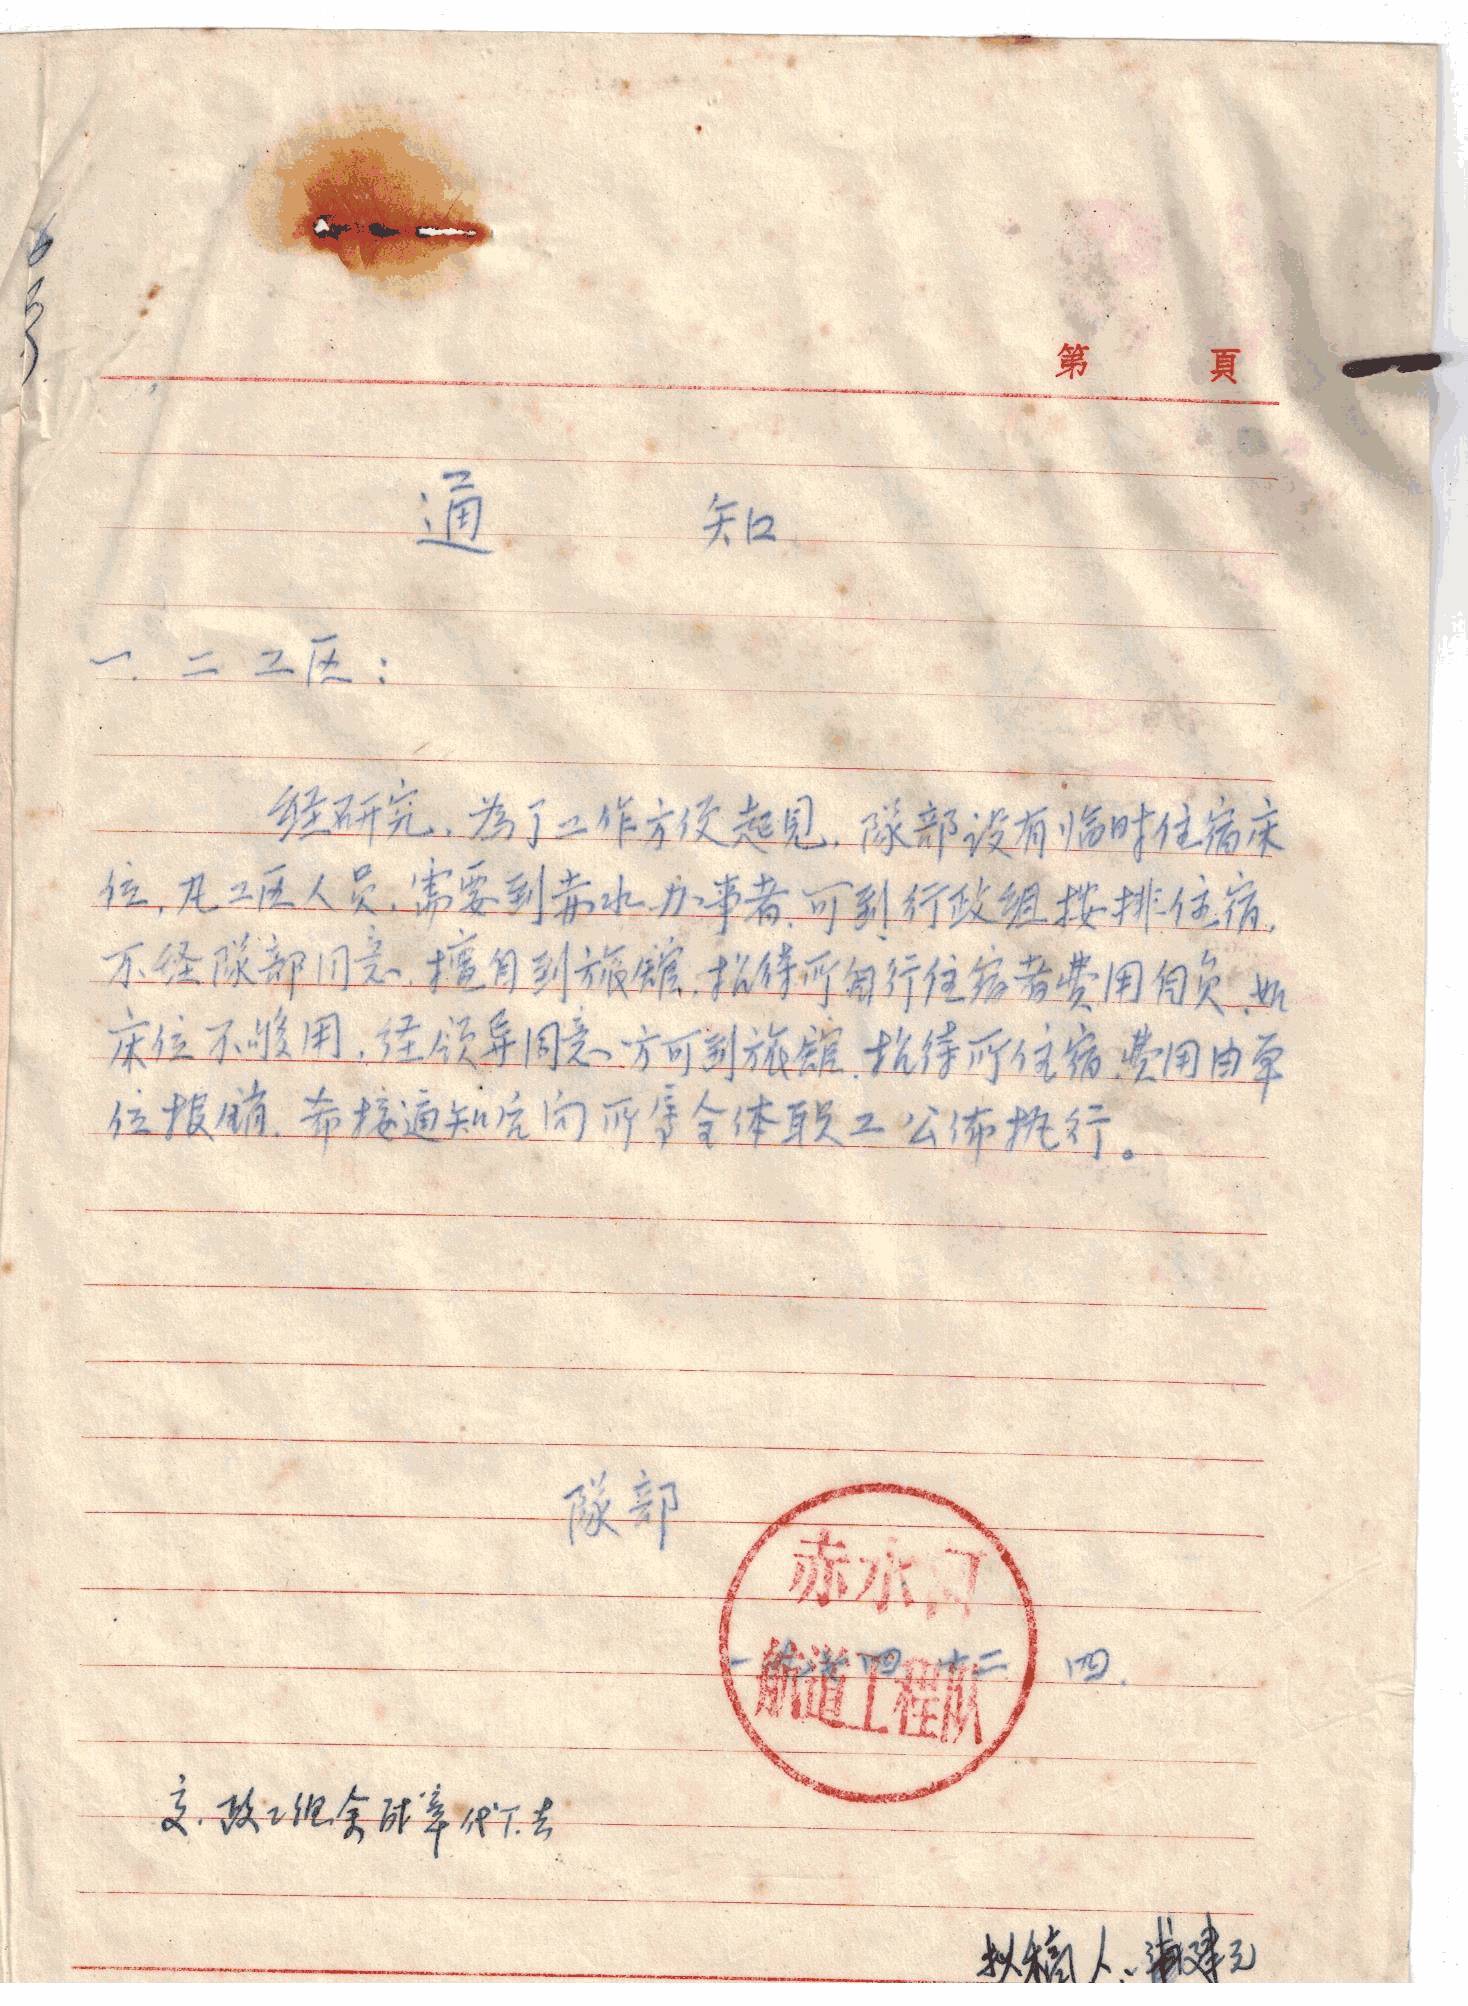 6号
第 頁
通 知
一、二工区：
经研究，为了工作方便起见，隊部设有临时住宿床
位，凡工区人员，需要到赤水办事者，可到行政组按排住宿，
不经隊部同意，擅自到旅馆，招待所自行住宿者费用自负，如
床位不够用，经领导同意方可到旅馆，招待所住宿，费用由单
位报销，希接通知后向所属全体职工公佈执行。
隊部
赤水河
航道工程队
四 十二 四.
交.政工组余 章代下去
拟稿人：建元